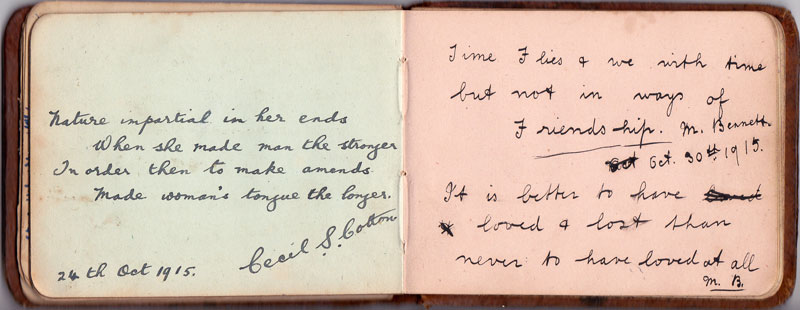 Nature impartial in her ends
When she made man the stronger
In order then to make amends
Made woman's tongue the longer.
Cecil S. Cotton
24th Oct 1915.
Time Flies & we with time
but not in ways of
Friendship. M. Bennett.
Oct. 30th 1915.
It is better to have loved
* loved & lost than
never to have loved at all
M. B.